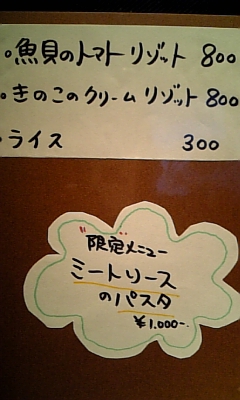 •魚貝のトマトリゾット 800
•きのこのクリームリゾット 800
•ライス 300
"限定メニュー
ミートソース
のパスタ
¥1.000-.